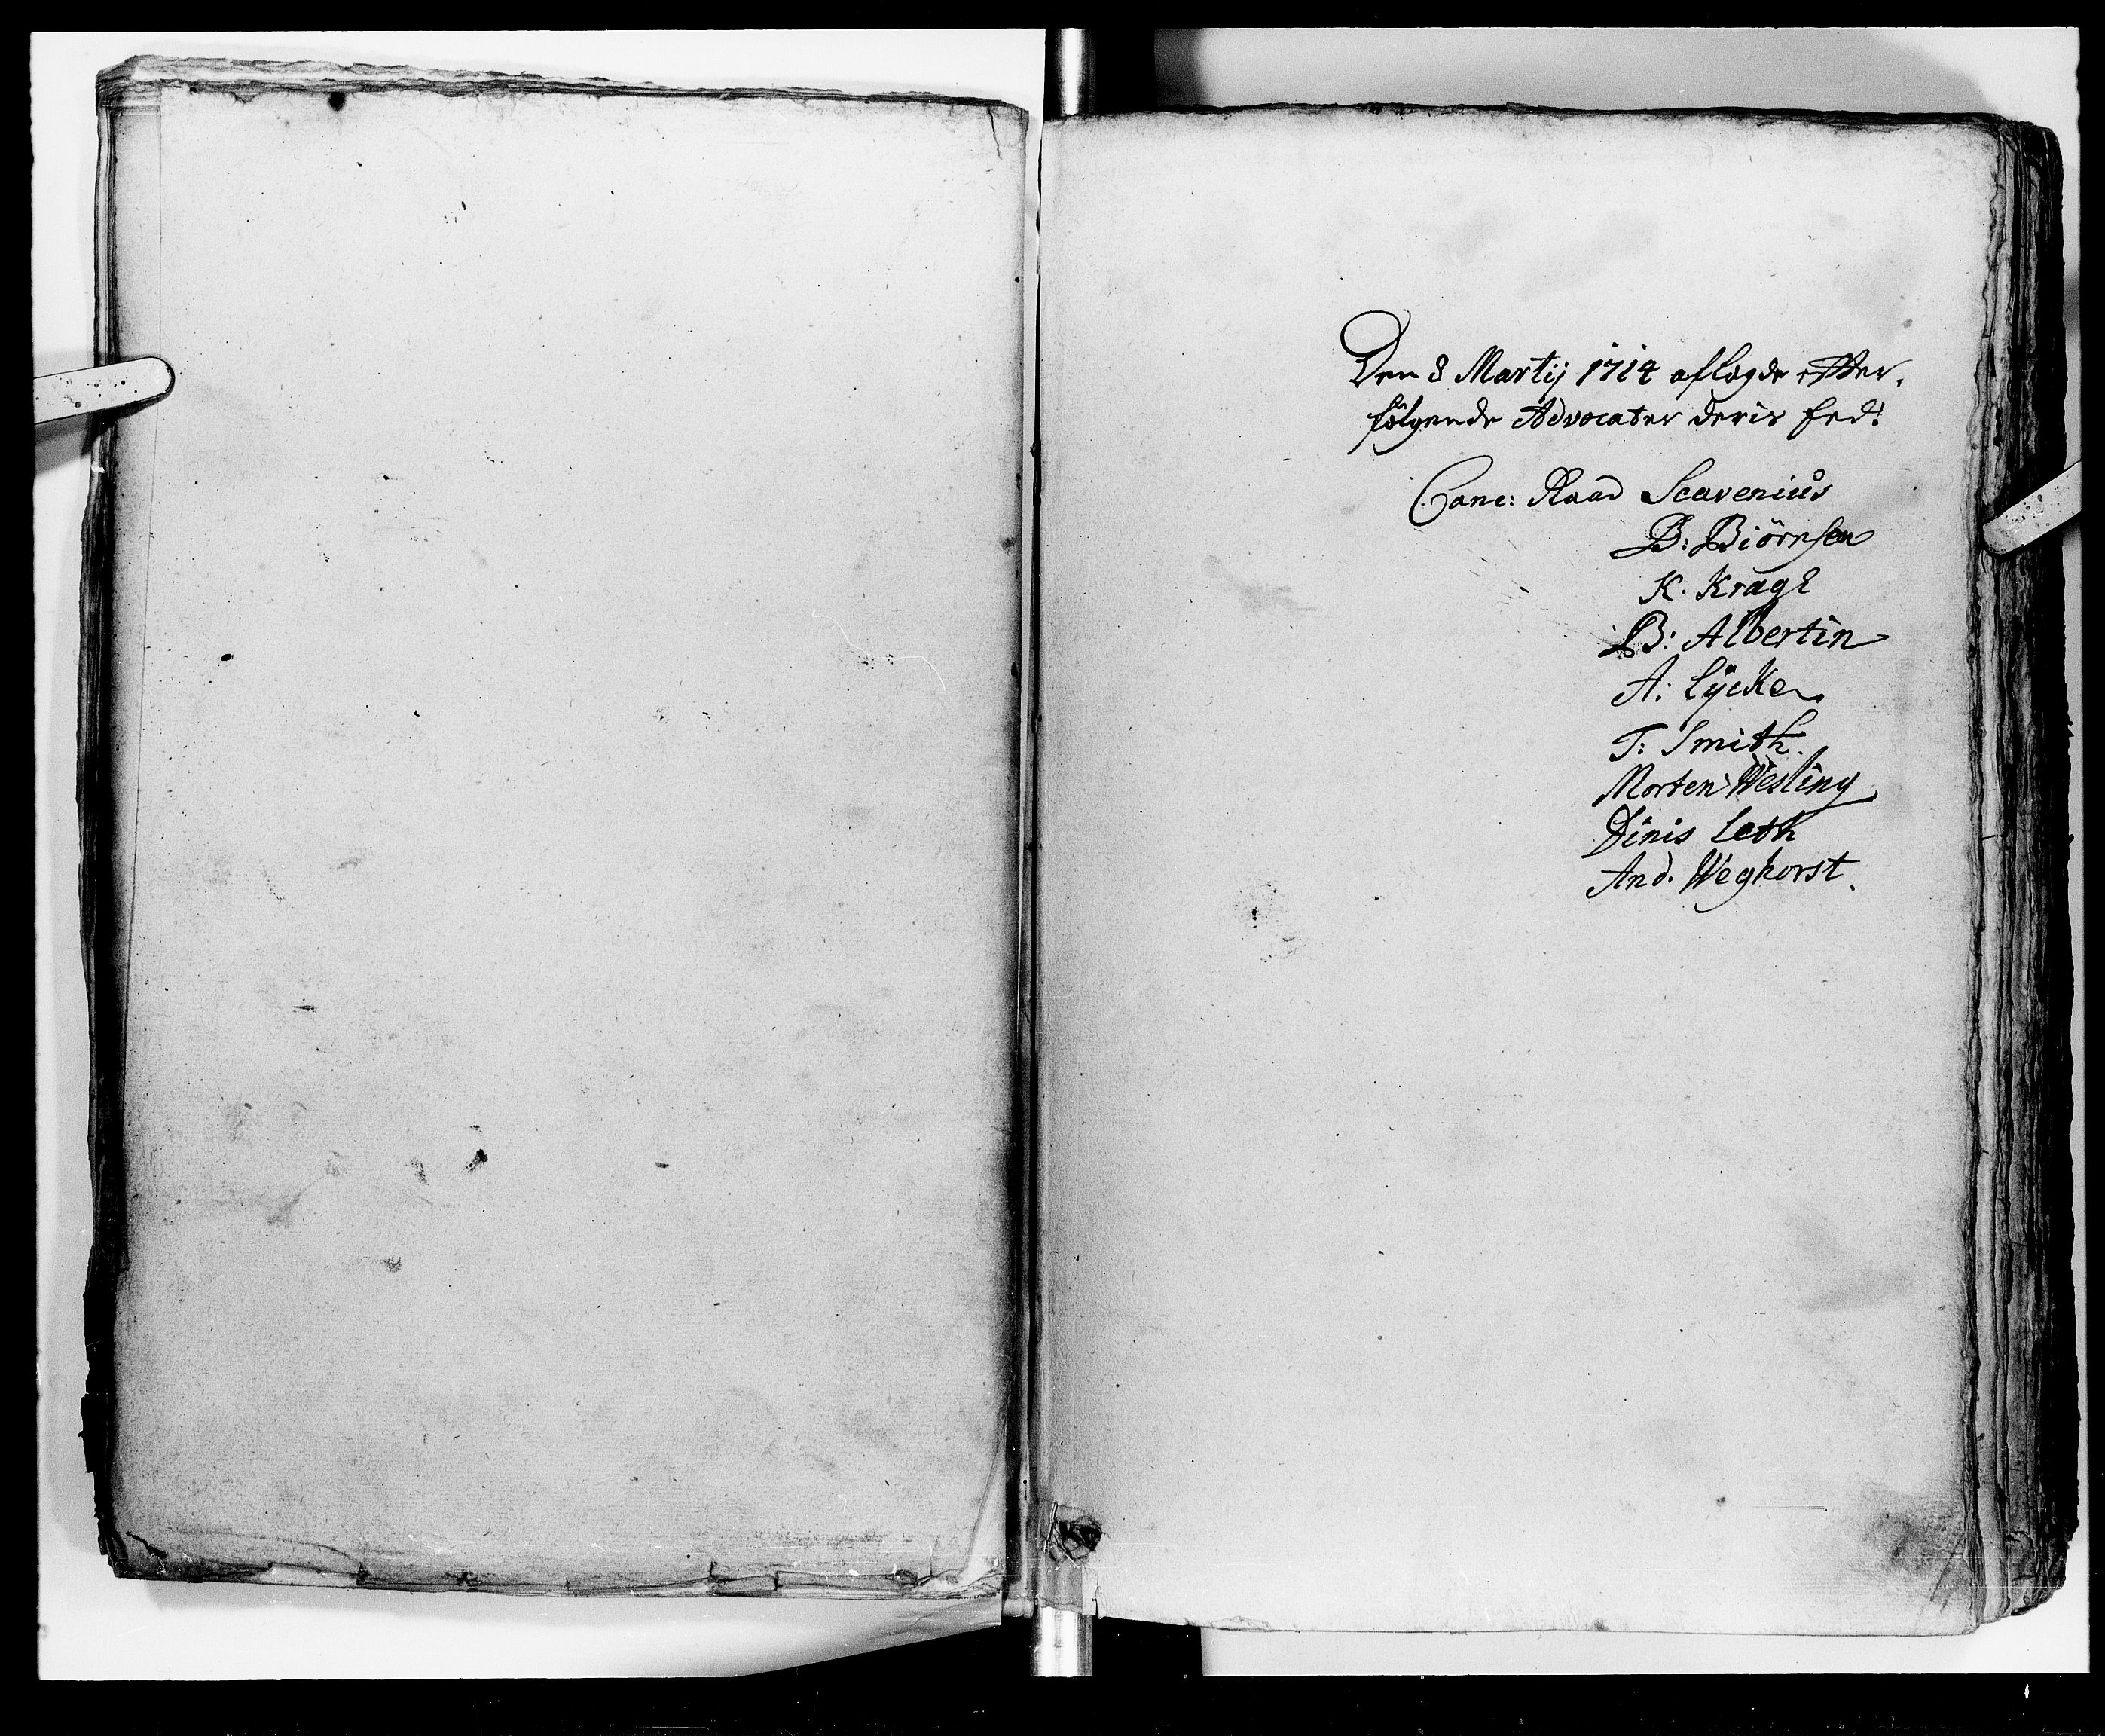 Den 8 Martij 1714 aflagde efter,
følgende Advocater deris Eed!
Canc: Raad Scavenius
B: Biörnsen
K. Kragh
B: Albertin
A: Lÿcke
T: Smith.
Morten Wesling
Dinis Leth
And. Weghorst.